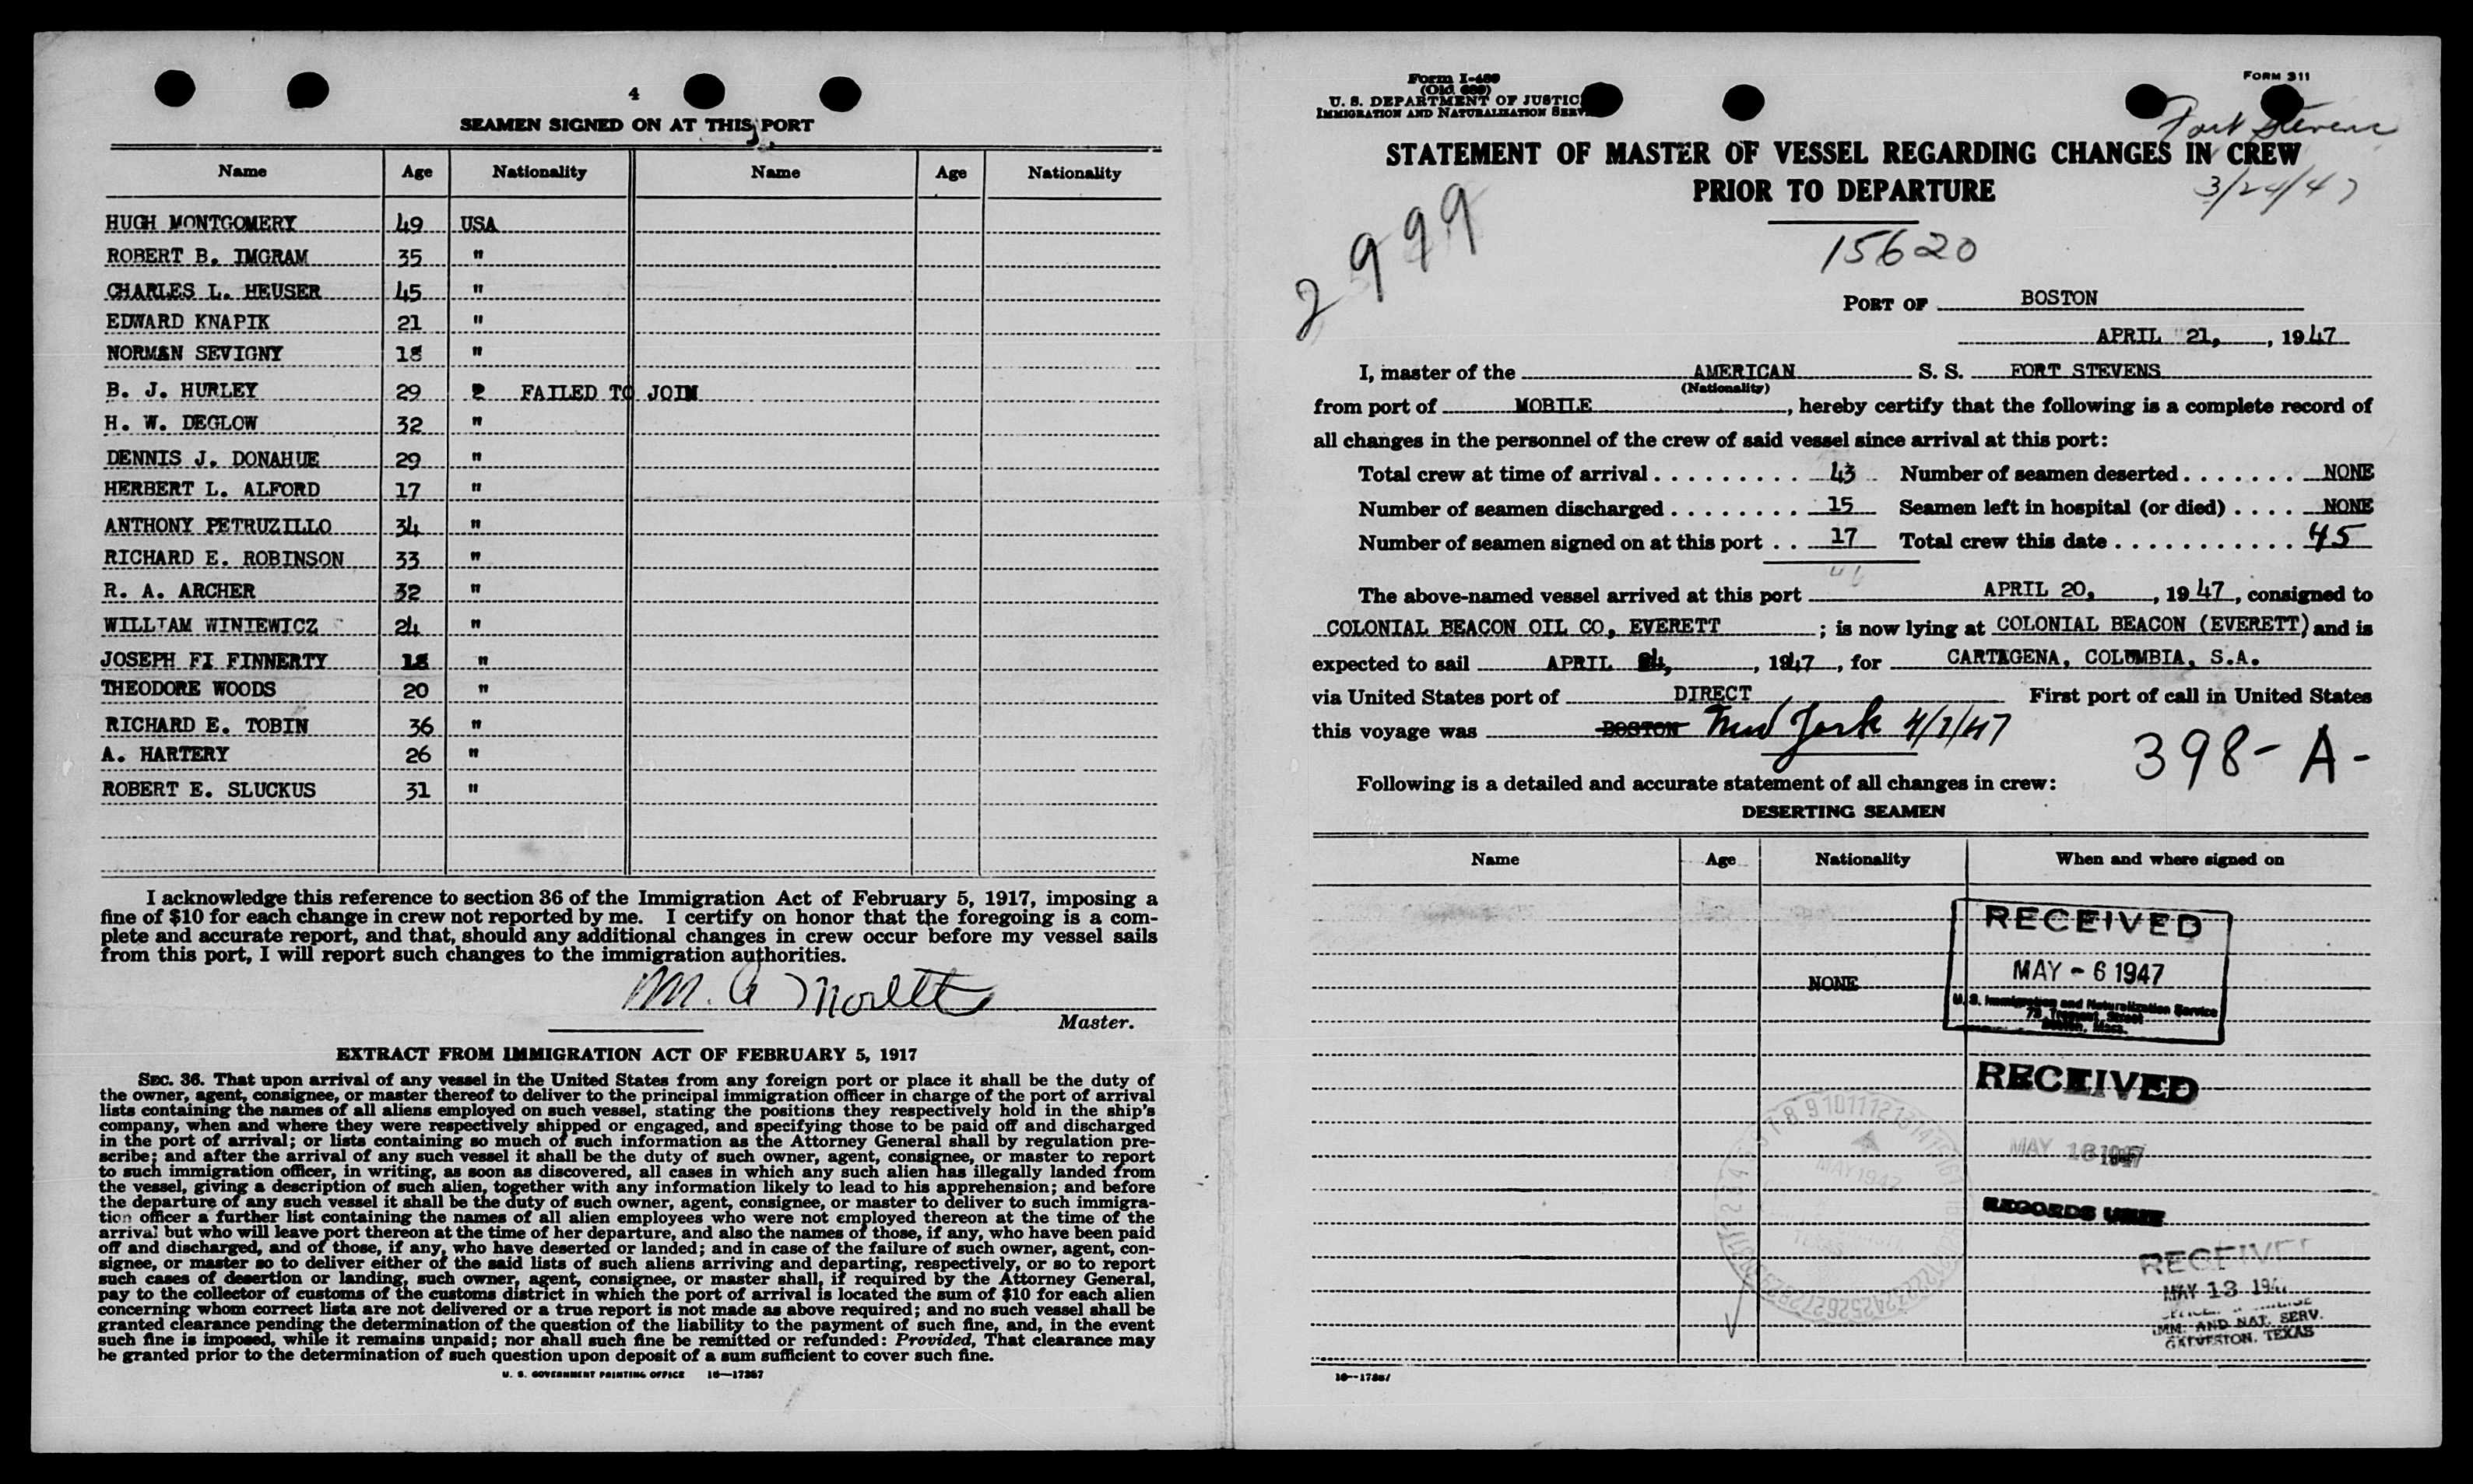 4
SEAMEN SIGNED ON AT THIS PORT
Name Age Nationality Name Age Nationality
HUGH MONTGOMERY 49 USA
ROBERT B. IMGRAM 35 "
CHARLES L. HEUSER 45 "
EDWARD KNAPIK 21 "
NORMAN SEVIGNY 18 "
B. J. HURLEY 29 FAILED TO JOIN
H. W. DEGLOW 32 "
DENNIS J. DONAHUE 29 "
HERBERT L. ALFORD 17 "
ANTHONY PETRUZILLO 34 "
RICHARD E. ROBINSON 33 "
R. A. ARCHER 32 "
WILLIAM WINIEWICZ 24 "
JOSEPH FI FINNERTY 18 "
THEODORE WOODS 20 "
RICHARD E. TOBIN 36 "
A. HARTERY 26 "
ROBERT E. SLUCKUS 31 "
I acknowledge this reference to section 36 of the Immigration Act of February 5, 1917, imposing a
fine of $10 for each change in crew not reported by me. I certify on honor that the foregoing is a com-
plete and accurate report, and that, should any additional changes in crew occur before my vessel sails
from this port, I will report such changes to the immigration authorities.
M. A.
Master.
EXTRACT FROM IMMIGRATION ACT OF FEBRUARY 5, 1917
SEC. 36. That upon arrival of any vessel in the United States from any foreign port or place it shall be the duty of
the owner, agent, consignee, or master thereof to deliver to the principal immigration officer in charge of the port of arrival
lists containing the names of all aliens employed on such vessel, stating the positions they respectively hold in the ship's
company, when and where they were respectively shipped or engaged, and specifying those to be paid off and discharged
in the port of arrival; or lists containing so much of such information as the Attorney General shall by regulation pre-
scribe; and after the arrival of any such vessel it shall be the duty of such owner, agent, consignee, or master to report
to such immigration officer, in writing, as soon as discovered, all cases in which any such alien has illegally landed from
the vessel, giving a description of such alien, together with any information likely to lead to his apprehension; and before
the departure of any such vessel it shall be the duty of such owner, agent, consignee, or master to deliver to such immigra-
tion officer a further list containing the names of all alien employees who were not employed thereon at the time of the
arrival but who will leave port thereon at the time of her departure, and also the names of those, if any, who have been paid
off and discharged, and of those, if any, who have deserted or landed; and in case of the failure of such owner, agent, con-
signee, or master so to deliver either of the said lists of such aliens arriving and departing, respectively, or so to report
such cases of desertion or landing, such owner, agent, consignee, or master shall, if required by the Attorney General,
pay to the collector of customs of the customs district in which the port of arrival is located the sum of $10 for each alien
concerning whom correct lists are not delivered or a true report is not made as above required; and no such vessel shall be
granted clearance pending the determination of the question of the liability to the payment of such fine, and, in the event
such fine is imposed, while it remains unpaid; nor shall such fine be remitted or refunded: Provided, That clearance may
be granted prior to the determination of such question upon deposit of a sum sufficient to cover such fine.
U. S. GOVERNMENT PRINTING OFFICE 16—17357
Form I-489
(Old 689)
U. S. DEPARTMENT OF JUSTIC
IMMIGRATION AND NATURALIZATION SERV
FORM 311
Fort Stevens
STATEMENT OF MASTER OF VESSEL REGARDING CHANGES IN CREW
PRIOR TO DEPARTURE
3/24/47
2999
15620
PORT OF BOSTON
APRIL 21, , 1947
I, master of the AMERICAN S. S. FORT STEVENS
(Nationality)
from port of MOBILE , hereby certify that the following is a complete record of
all changes in the personnel of the crew of said vessel since arrival at this port:
Total crew at time of arrival . . . . . . . . . 43 Number of seamen deserted . . . . . . . NONE
Number of seamen discharged . . . . . . . . 15 Seamen left in hospital (or died) . . . . NONE
Number of seamen signed on at this port . . 17 Total crew this date . . . . . . . . . . . . 45
46
The above-named vessel arrived at this port APRIL 20, , 1947, consigned to
COLONIAL BEACON OIL CO, EVERETT ; is now lying at COLONIAL BEACON (EVERETT) and is
expected to sail APRIL , 1947, for CARTAGENA, COLUMBIA, S.A.
via United States port of DIRECT First port of call in United States
this voyage was BOSTON New York 4/1/47
398- A-
Following is a detailed and accurate statement of all changes in crew:
DESERTING SEAMEN
Name Age Nationality When and where signed on
NONE
RECEIVED
MAY - 6 1947
U. S. Immigration and Naturalization Service
73 Tremont Street
Boston, Mass.
RECEIVED
MAY 1947
RECORDS UNIT
RECEIVED
MAY 13 194
IMM. AND NAT. SERV.
GALVESTON, TEXAS
MAY 1947